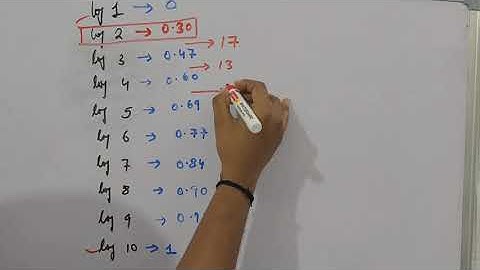 log 1 → 0
log 2 → 0.30
→ 17
log 3 → 0.47
→ 13
log 4 → 0.60
→
log 5 → 0.69
log 6 → 0.77
log 7 → 0.84
log 8 → 0.90
log 9 → 0.9
log 10 → 1